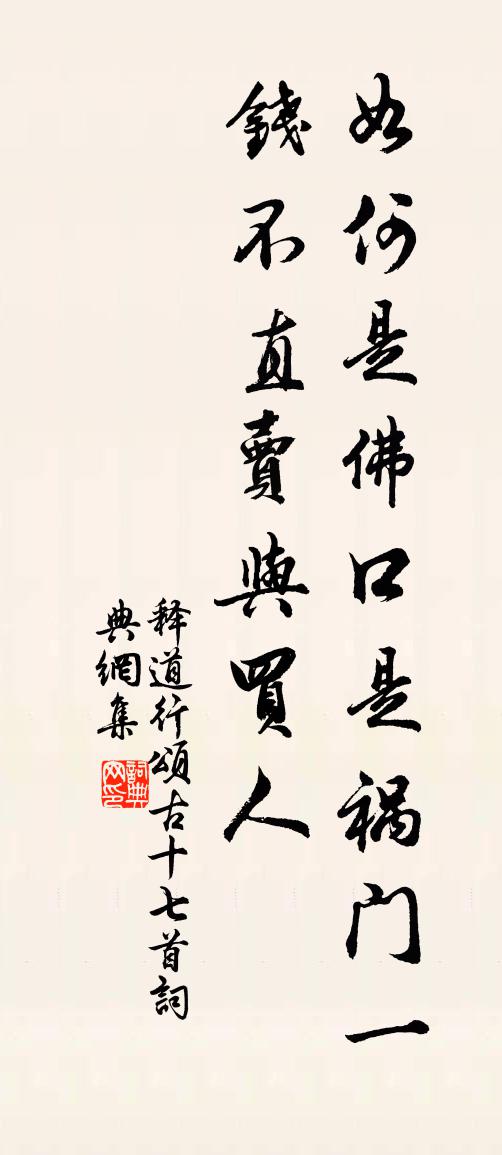 如何是佛口是祸门一
錢不直賣與買人
释道行頌古十七首詞
典網集
詞典网印